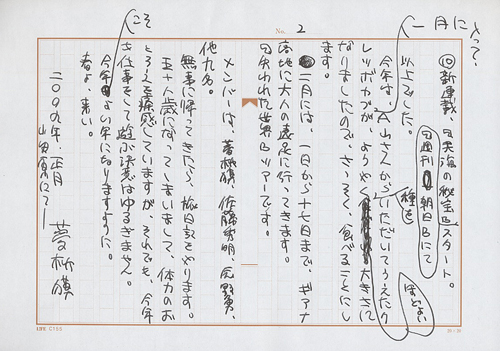 No. 2
一月に入って、
⑩新連載、『大江戸の秘宝』スタート。
『週刊朝日』にて
以上でした。
今年は、Aさんからいただいてうえたカ
種を
レツボカブが、ようやくほどよい大きさに
なりましたので、さっそく、食べることにし
ます。
●二月には、一日から十七日まで、ギアナ
高地に大人の遠足に行ってきます。
『失われた世界』ツアーです。
メンバーは、夢枕獏、佐藤秀明、
他九名。
無事に帰ってきたら、旅日記をやります。
五十八歳になってしまいまして、体力のお
とろえを痛感していますが、それでも、今年
も仕事をして遊ぶ決意はゆるぎません。
今年こそよい年になりますように。
春よ、来い。
二〇〇九年・正月
小田原にて――
夢枕獏
LIFE C155
20×20